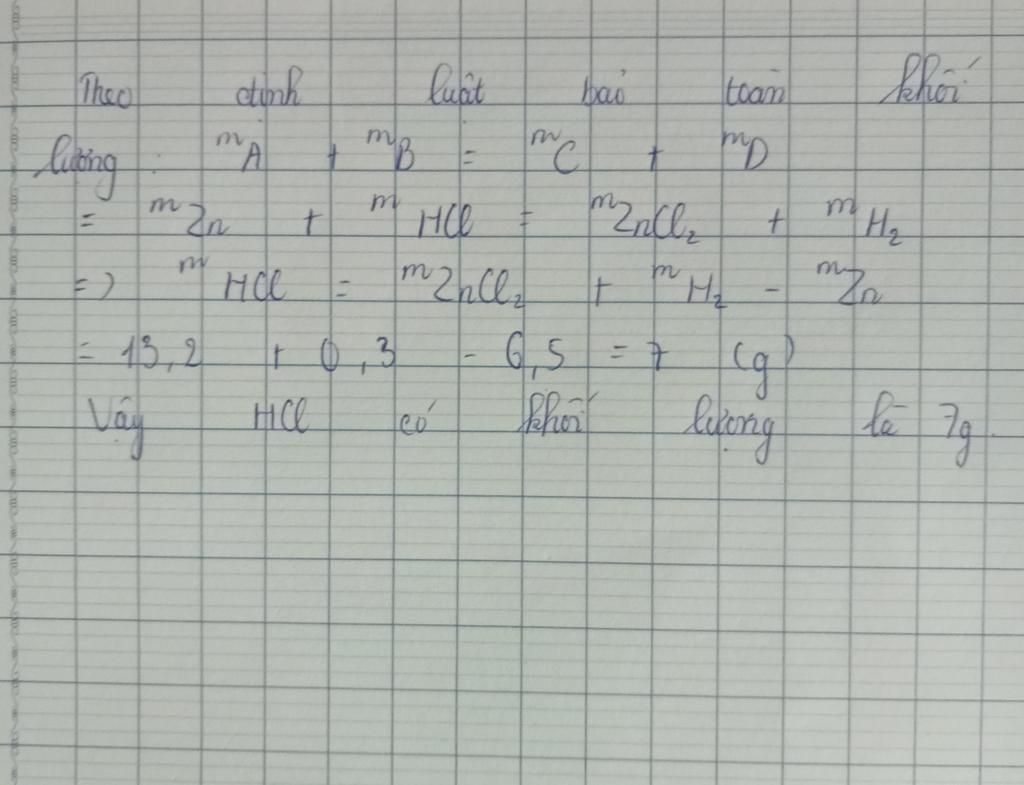 Theo định luật bảo toàn khối
lượng : mA + mB = mC + mD
= mZn + mHCl = mZnCl₂ + mH₂
=> mHCl = mZnCl₂ + mH₂ - mZn
= 13,2 + 0,3 - 6,5 = 7 (g)
Vậy HCl có khối lượng là 7g.